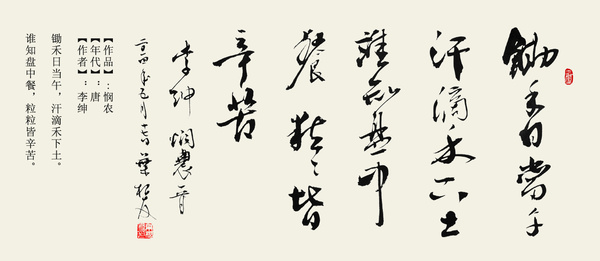 鋤禾日當午
汗滴禾下土
誰知盘中
餐粒々皆
辛苦
李紳 憫農
【作品】:悯农
【年代】:唐
【作者】:李绅
锄禾日当午,汗滴禾下土。
谁知盘中餐,粒粒皆辛苦。